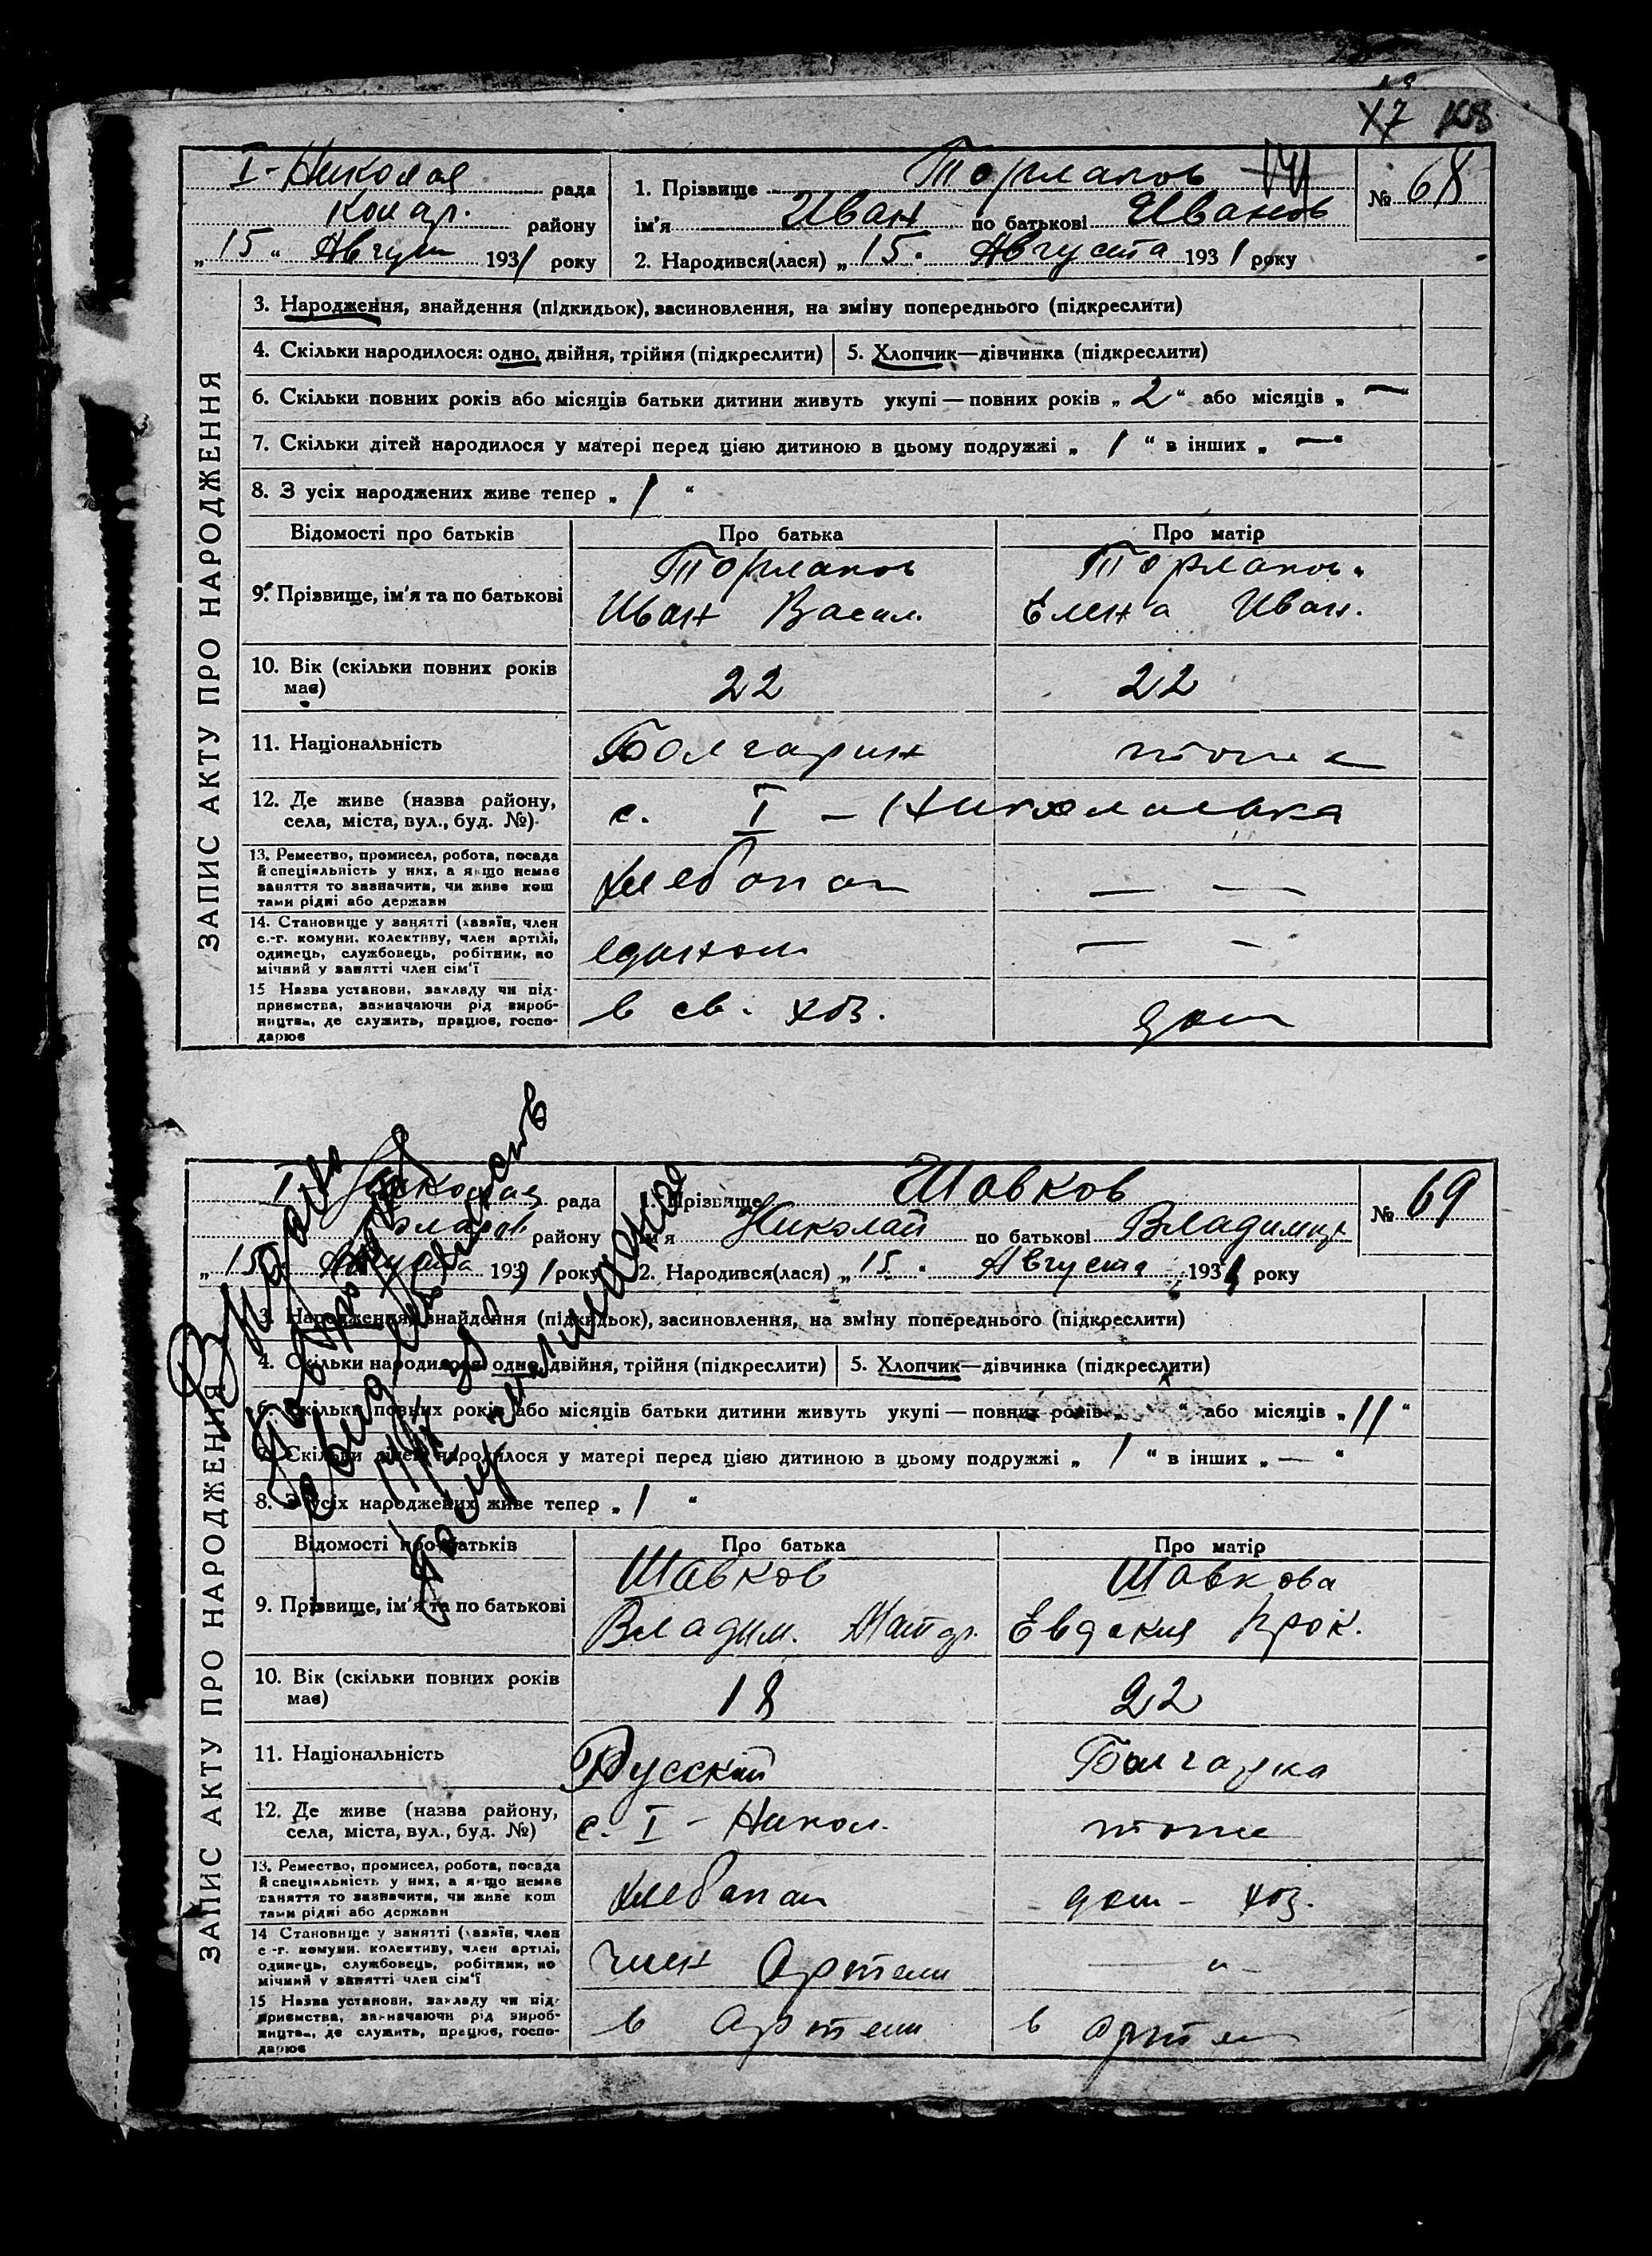 Х7 108
І-Николая рада
Колар. району
„15“ Август 1931 року
1. Прізвище Торлаков
ім'я Иван по батькові Иванов
2. Народився(лася) „15. Августа 1931 року
№ 68
ЗАПИС АКТУ ПРО НАРОДЖЕННЯ
3. Народження, знайдення (підкидьок), засиновлення, на зміну попереднього (підкреслити)
4. Скільки народилося: одно, двійня, трійня (підкреслити) 5. Хлопчик—дівчинка (підкреслити)
6. Скільки повних років або місяців батьки дитини живуть укупі — повних років „2“ або місяців „—“
7. Скільки дітей народилося у матері перед цією дитиною в цьому подружжі „1“ в інших „—“
8. З усіх народжених живе тепер „1“
Відомості про батьків Про батька Про матір
9. Прізвище, ім'я та по батькові
Торлаков Торлаков.
Иван Васил. Елена Иван.
10. Вік (скільки повних років
має)
22 22
11. Національність Болгарин тоже
12. Де живе (назва району,
села, міста, вул., буд. №)
с. І – Николаевка
13. Ремество, промисел, робота, посада
й спеціяльність у них, а якщо немає
заняття то зазначити, чи живе кош
тами рідні або держави
хлебопаш — —
14. Становище у занятті (хазяїн, член
с.-г. комуни, колективу, член артілі,
одинець, службовець, робітник, по
мічний у занятті член сім'ї
единол — —
15 Назва установи, закладу чи під-
приємства, зазначаючи рід вироб-
ництва, де служить, працює, госпо-
дарює
в св. хоз. дом
І Николая рада
Коларов району
„15. Августа 1931 року
1. Прізвище Шавков
ім'я Николай по батькові Владимир
2. Народився(лася) „15. Августа 1931 року
№ 69
ЗАПИС АКТУ ПРО НАРОДЖЕННЯ
3. Народження, знайдення (підкидьок), засиновлення, на зміну попереднього (підкреслити)
4. Скільки народилося: одно, двійня, трійня (підкреслити) 5. Хлопчик—дівчинка (підкреслити)
6. Скільки повних років або місяців батьки дитини живуть укупі — повних років „ “ або місяців „11“
7. Скільки дітей народилося у матері перед цією дитиною в цьому подружжі „1“ в інших „—“
8. З усіх народжених живе тепер „1“
Відомості про батьків Про батька Про матір
9. Прізвище, ім'я та по батькові
Шавков Шавкова
Владим. Евдакия Прок.
10. Вік (скільки повних років
має)
18 22
11. Національність Русский Болгарка
12. Де живе (назва району,
села, міста, вул., буд. №)
с. І – Никол. тоже
13. Ремество, промисел, робота, посада
й спеціяльність у них, а якщо немає
заняття то зазначити, чи живе кош
тами рідні або держави
хлебопаш дом – хоз.
14 Становище у занятті (хазяїн, член
с-г. комуни, колективу, член артілі,
одинець, службовець, робітник, по
мічний у занятті член сім'ї
член Артели — „ —
15 Назва установи, закладу чи під-
приємства, зазначаючи рід вироб-
ництва, де служить, працює, госпо-
дарює
в артели в артел